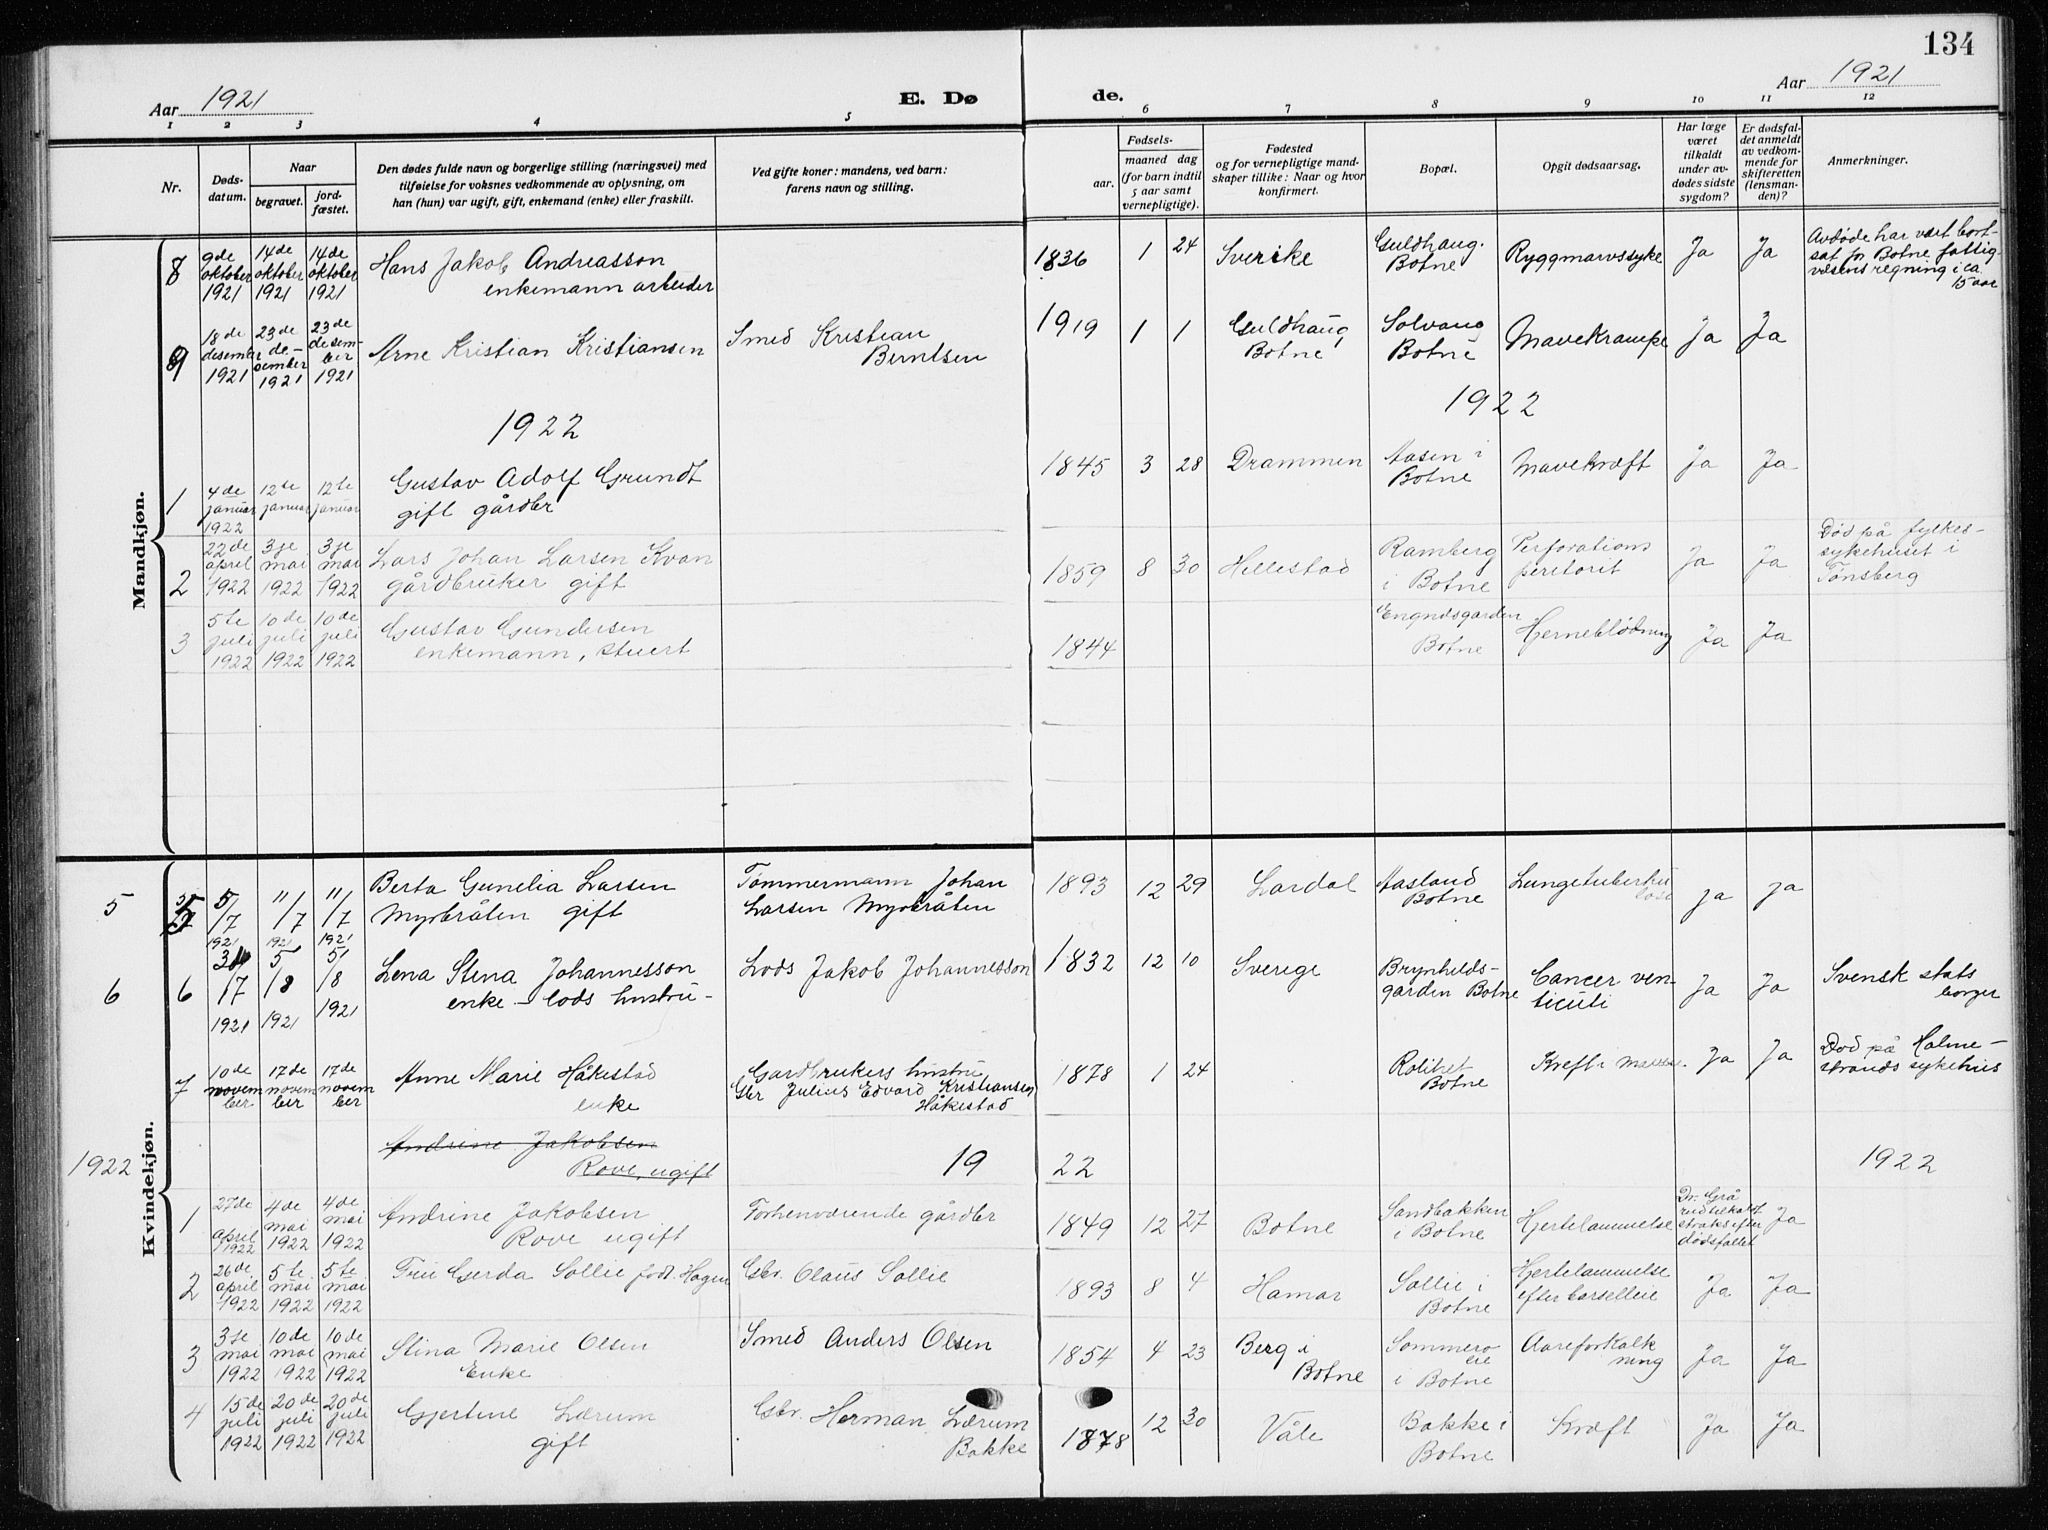 134
Aar 1921
E. Dø
de.
Aar 1921
1 2 3 4 5 6 7 8 9 10 11 12
Nr.
Døds-
datum.
Naar
begravet.
jord-
fæstet.
Den dødes fulde navn og borgerlige stilling (næringsvei) med
tilføielse for voksnes vedkommende av oplysning, om
han (hun) var ugift, gift, enkemand (enke) eller fraskilt.
Ved gifte koner: mandens, ved barn:
farens navn og stilling.
Fødsels-
aar.
maaned dag
(for barn indtil
5 aar samt
vernepligtige).
Fødested
og for vernepligtige mand-
skaper tillike: Naar og hvor
konfirmert.
Bopæl.
Opgit dødsaarsag.
Har læge
været
tilkaldt
under av-
dødes sidste
sygdom?
Er dødsfal-
det anmeldt
av vedkom-
mende for
skifteretten
(lensman-
den)?
Anmerkninger.
Mandkjøn.
8
9de oktober 1921
14de oktober 1921
14de oktober 1921
Hans Jakob Andreasson
enkemann arbeider
1836 1 24
Sverike
Guldhaug.
Botne
Ryggmarvssyke
Ja
Ja
Avdøde har vært bort-
sat for Botne fattig-
væsens regning i ca.
15 aar
9
18de desember 1921
23de desember 1921
23de desember 1921
Arne Kristian Kristiansen
Smed Kristian
Berntsen
1919 1 1
Guldhaug
Botne
Solvang
Botne
Mavekrampe
Ja
Ja
1922
1922
1
4de januar 1922
12te januar
12te januar
Gustav Adolf Grundt
gift gårdbr
1845 3 28
Drammen
Aasen i
Botne
Mavekræft
Ja
Ja
2
22de april 1922
3je mai 1922
3je mai 1922
Lars Johan Larsen Kvan
gårdbruker gift
1859 8 30
Hillestad
Ramberg
i Botne
Perforations
peritorit
Ja
Ja
Død på fylkes-
sykehuset i
Tønsberg
3
5te juli 1922
10de juli 1922
10de juli 1922
Gustav Gundersen
enkemann, stuert
1844
Botne
Hjerneblødning
Ja
Ja
Kvindekjøn.
5
5
5/7 1921
11/7 1921
11/7 1921
Berta Gunelia Larsen
Myrbråten gift
Tømmermann Johan
Larsen Myrbråten
1893 12 29
Lardal
Aasland
Botne
Lungetuberku
lose
Ja
Ja
6
6
31/7 1921
5/8 1921
5/8 1921
Lena Stina Johannesson
enke - lods hustru -
Lods Jakob Johannesson
1832 12 10
Sverige
Brynhilds-
garden Botne
Cancer ven-
ticuli
Ja
Ja
Svensk stats
borger
7
10de november
17de november
17de november
Anne Marie Håkestad
enke
Gardbrukers hustru
Gbr Julius Edvard Kristiansen
Håkestad
1878 1 24
Botne
Kreft i maven.
Ja
Ja
Død på Holme-
strands sykehus
1922
Andrine Jakobsen
Rove, ugift
19
22
1922
1
27de april 1922
4de mai 1922
4de mai 1922
Andrine Jakobsen
Rove ugift
Forhenværende gårdbr
1849 12 27
Botne
Sandbakken
i Botne
Hjertelammelse
Dr. Grå
rud tilkaldt
straks efter
dødsfallet
Ja
2
26de april 1922
5te mai 1922
5te mai 1922
Fru Gerda Sollie født Hagen
Gbr. Olaus Sollie
1893 8 4
Hamar
Sollie i
Botne
Hjertelammelse
efter barselleie
Ja
Ja
3
3je mai 1922
10de mai 1922
10de mai 1922
Stina Marie Olsen
Enke
Smed Anders Olsen
1854 4 23
Berg i
Botne
i Botne
Aareforkalk
ning
Ja
Ja
4
15de juli 1922
20de juli 1922
20de juli 1922
Gjertine Lærum
gift
Gbr. Herman Lærum
Bakke
1878 12 30
Våle
Bakke i
Botne
Kræft
Ja
Ja